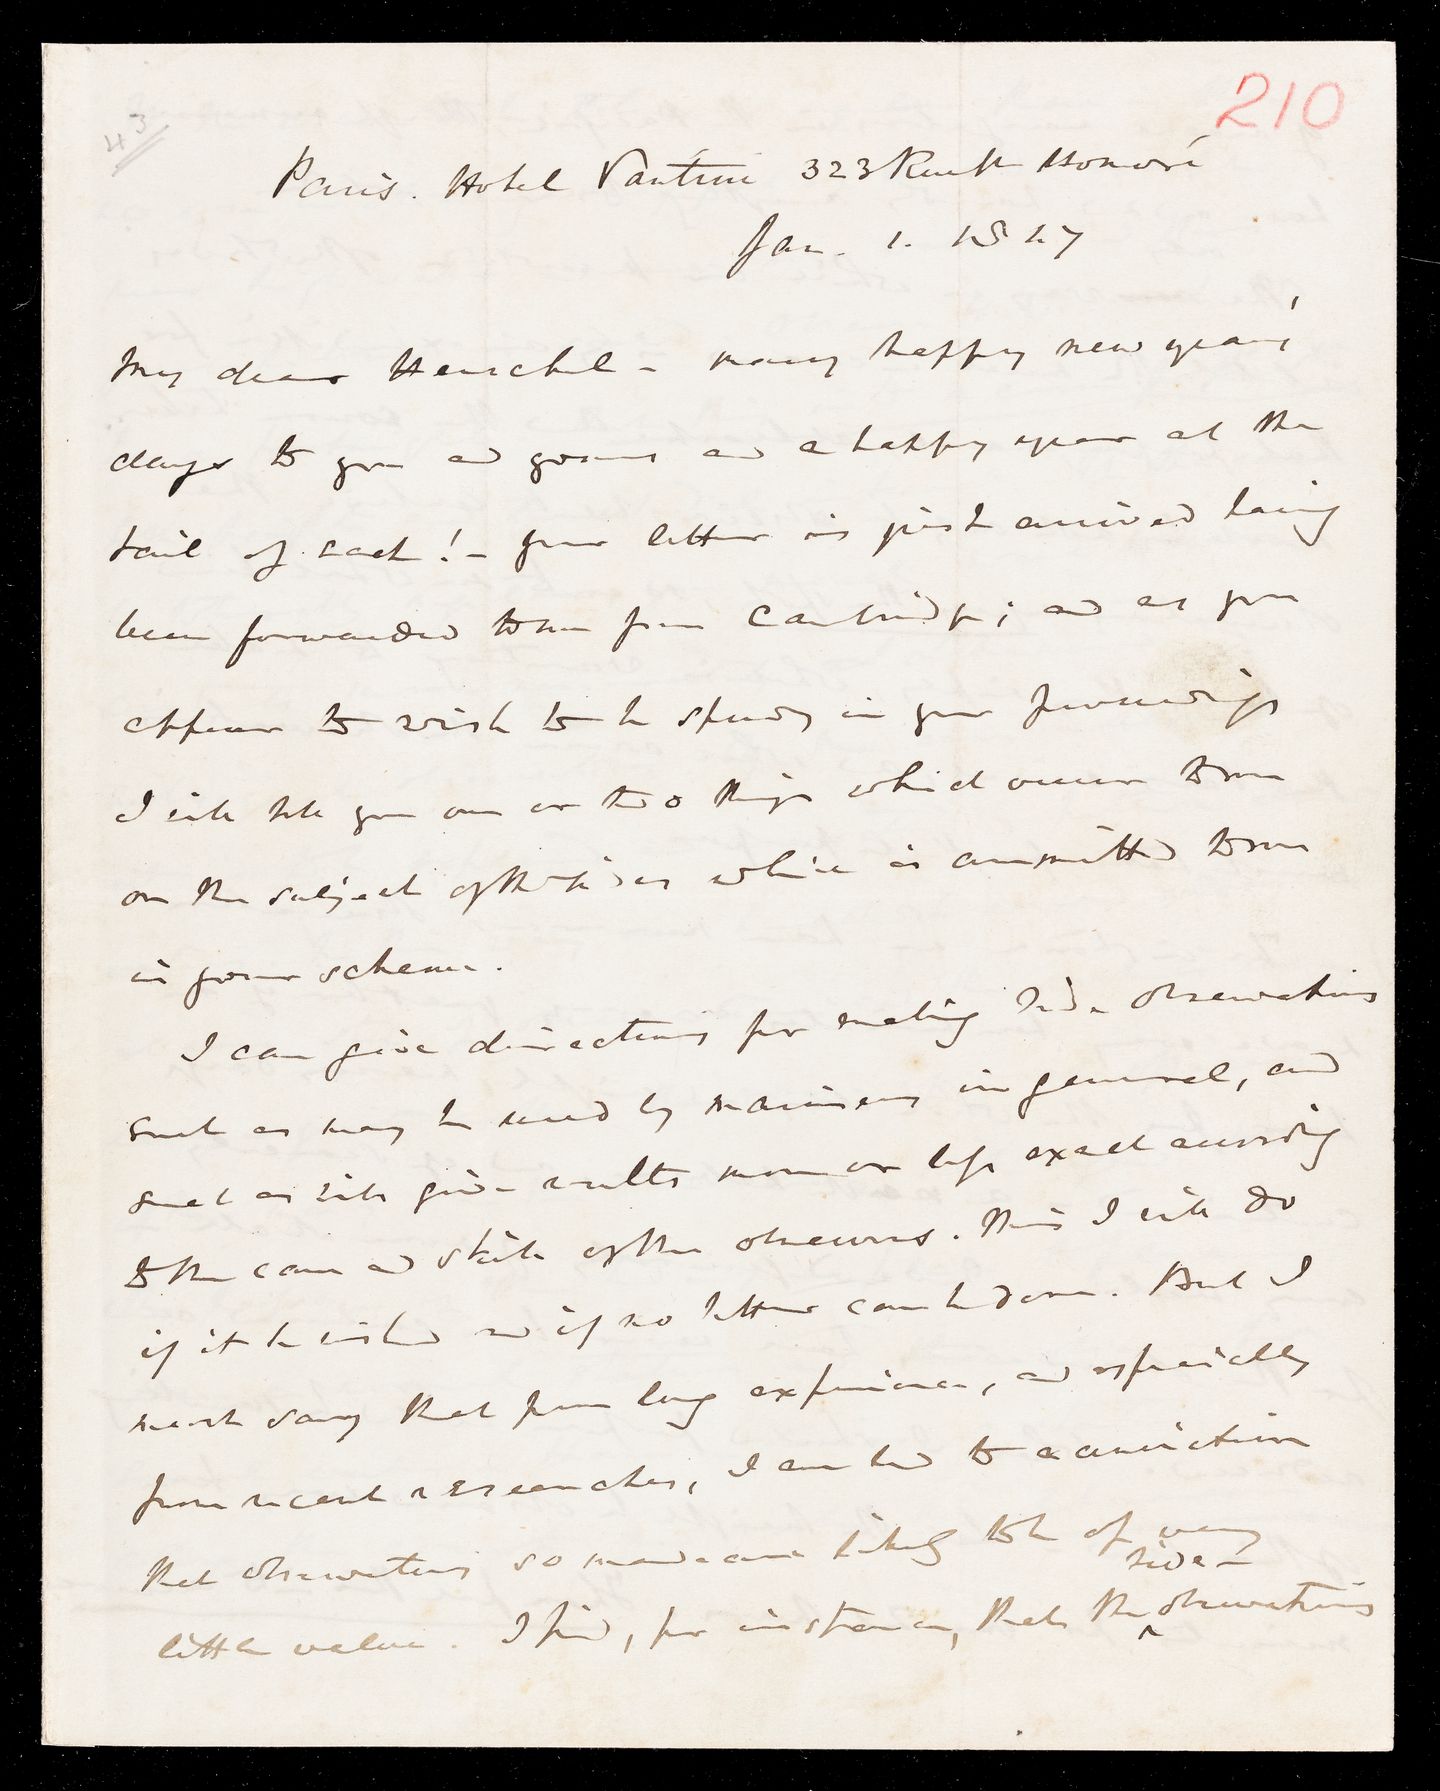 210
43
Paris. Hotel Vantini 323 Rue St Honoré
Jan. 1. 1847
My dear Herschel - many happy new years'
days to you and yours and a happy year at the
tail of each! - Your letter is just arrived having
been forwarded to me from Cambridge; and as you
appear to wish to be speedy in your proceedings
I will tell you one or two things which occur to me
on the subject of the tides which is committed to me
in your scheme.
I can give directions for making tide observations
such as may be used by mariners in general, and
such as will give results more or less exact according
to the care and skill of the observers. This I will do
if it be wished and if no better can be done. But I
must say that from long experience, and especially
from recent researches, I am led to a conviction
that observations so made are likely to be of very
little value. I find, for instance, that the tide-observations